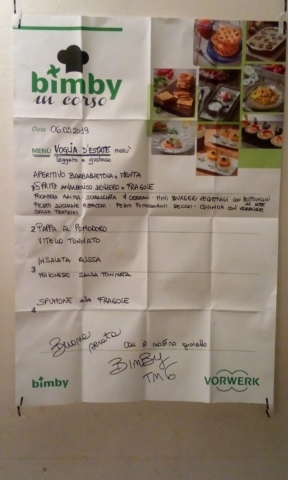 bimby
in corso
Data 06.02.2019
MENÙ VOGLIA D'ESTATE menù
leggero e gustoso
APERITIVO BARBABIETOLA e MENTA
SPRITZ ANALCOLICO ZENZERO e FRAGOLE
CEREALI MINI BURGERS VEGETALI CON
PESTO ZUCCHINE PESTO POMODORINI SECCHI - QUINOA CON VERDURE
SALSA TARTARA
2 PAPPA AL POMODORO
VITELLO TONNATO
INSALATA RUSSA
3
MAIONESE - SALSA TONNATA
SPUMONE alle FRAGOLE
4
Buona serata con il nostro gioiello
BIMBY
TM6
bimby
VORWERK